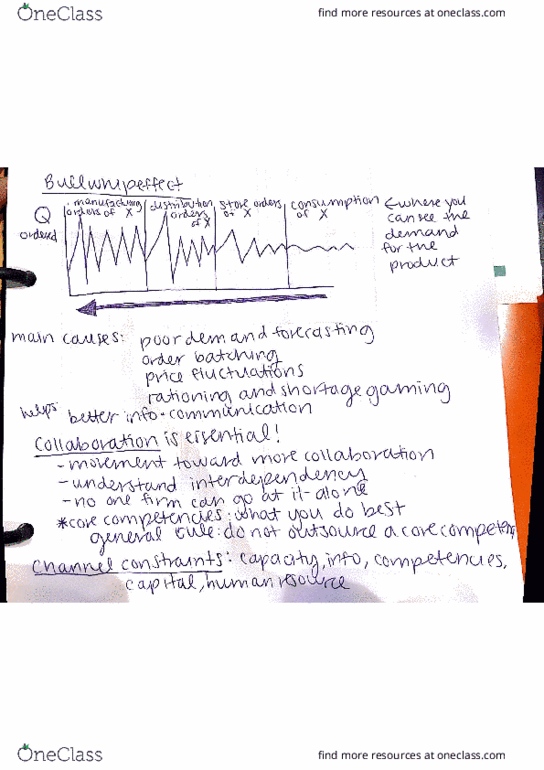 OneClass
find more resources at oneclass.com
Bullwhip effect
Q
ordered
manufacturing
orders of X
distribution
orders
of X
store orders
of X
consumption
of X
← where you
can see the
demand
for the
product
main causes: poor demand forecasting
order batching
price fluctuations
rationing and shortage gaming
helps: better info + communication
Collaboration is essential!
- movement toward more collaboration
- understand interdependency
- no one firm can go at it alone
*core competencies: what you do best
general rule: do not outsource a core competency
Channel constraints: capacity, info, competencies,
capital, human resource
OneClass
find more resources at oneclass.com